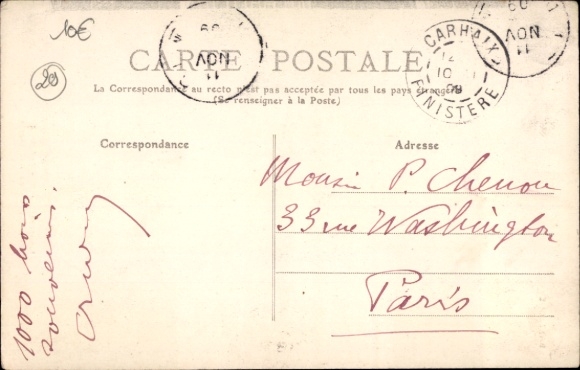 10€
29
CARTE POSTALE
La Correspondance au recto n'est pas acceptée par tous les pays étrangers
(Se renseigner à la Poste)
CARHAIX
12
10
09
FINISTERE
11
NOV
09
11
NOV
09
Correspondance
Adresse
1000 bons
souvenirs.
Monsin P. Chenou
33 rue Washington
Paris